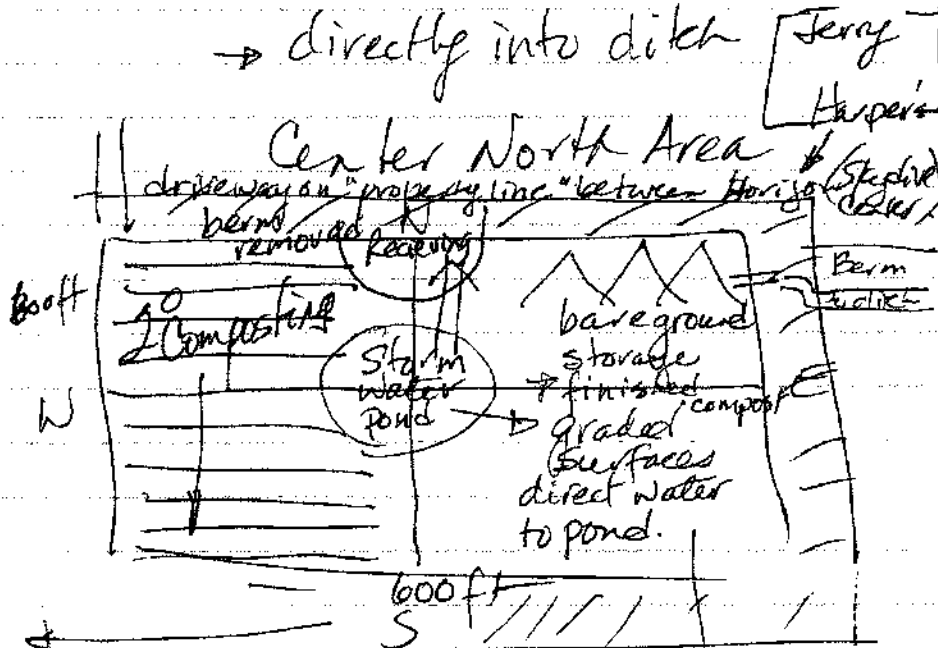 → directly into ditch
Jerry
Harper's
Center North Area
driveway on "property line" between Horizon (Skydive
berm
removed
Recieving
Berm
ditch
2° Composting
Storm
water
pond
bareground
storage
→ finished compost
→ graded
(surfaces
direct water
to pond.
W
E
600 ft
S